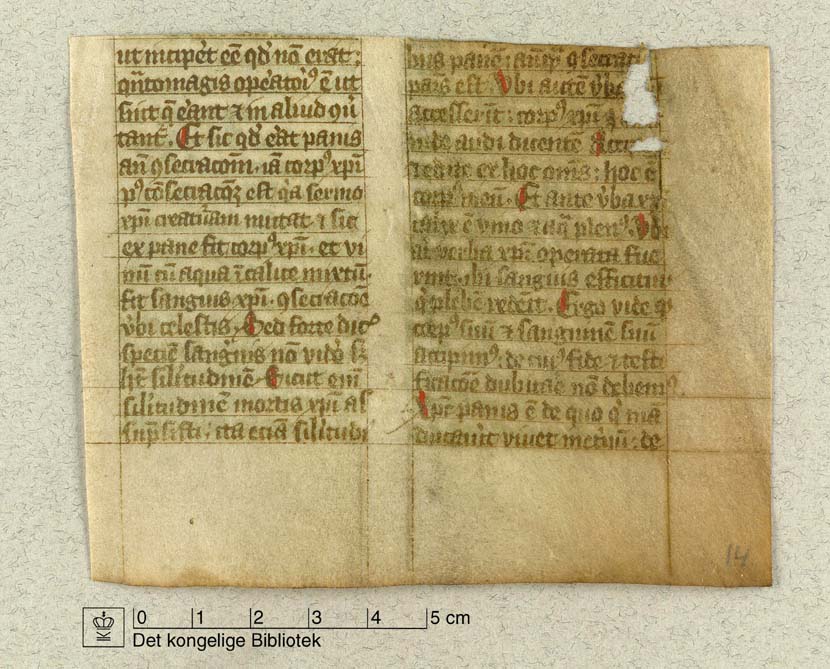 ut incip̄et eē qd̓ nō erat:
q̄ntomagis opератоiꝰ ē ut
sint q̄ erant ⁊ in aliud q̄m
tant̄. Et sic qd̓ erat panis
an̄ ꝯsecracōm. iā corpꝰ xp̄i
pꝰ cōsecracōꝫ est q̄a sermo
xp̄i creat̄am mutat ⁊ sic
ex pane fit corpꝰ xp̄i. et vi
nū cū aqua ī calice mixtū.
fit sanguis xp̄i. ꝯsecracōe
v̄bi celestis. Sed forte dicꝰ
speciē sang̓nis nō video sꝫ
hꝫ sil̓itudinē. Sicut eni
sil̓itudinē mortis xp̄i as
sūpsisti. ita eciā sil̓itudi
bus
pars est. Vbi autē v̄ba
accesserīt: corpꝰ xp̄i
inde audi dicentē Acci
edite ex hoc om̄s: hoc ē
corpꝰ meū. Et ante v̄ba xp̄i
calix ē vino ⁊ aq̄ plenꝰ. Vbi
aū verba xp̄i operata fue
rint. ibi sanguis efficitur
q̓ plebē redeit. Ergo vide
corpꝰ suū ⁊ sanguinē suū
accipimꝰ. de cuiꝰ fide ⁊ testi
ficacōe dubitare nō debemꝰ.
Xp̄c panis ē de quo q̓ mā
ducau̓it vivet ī et̓nū: de
14
0 1 2 3 4 5 cm
Det kongelige Bibliotek